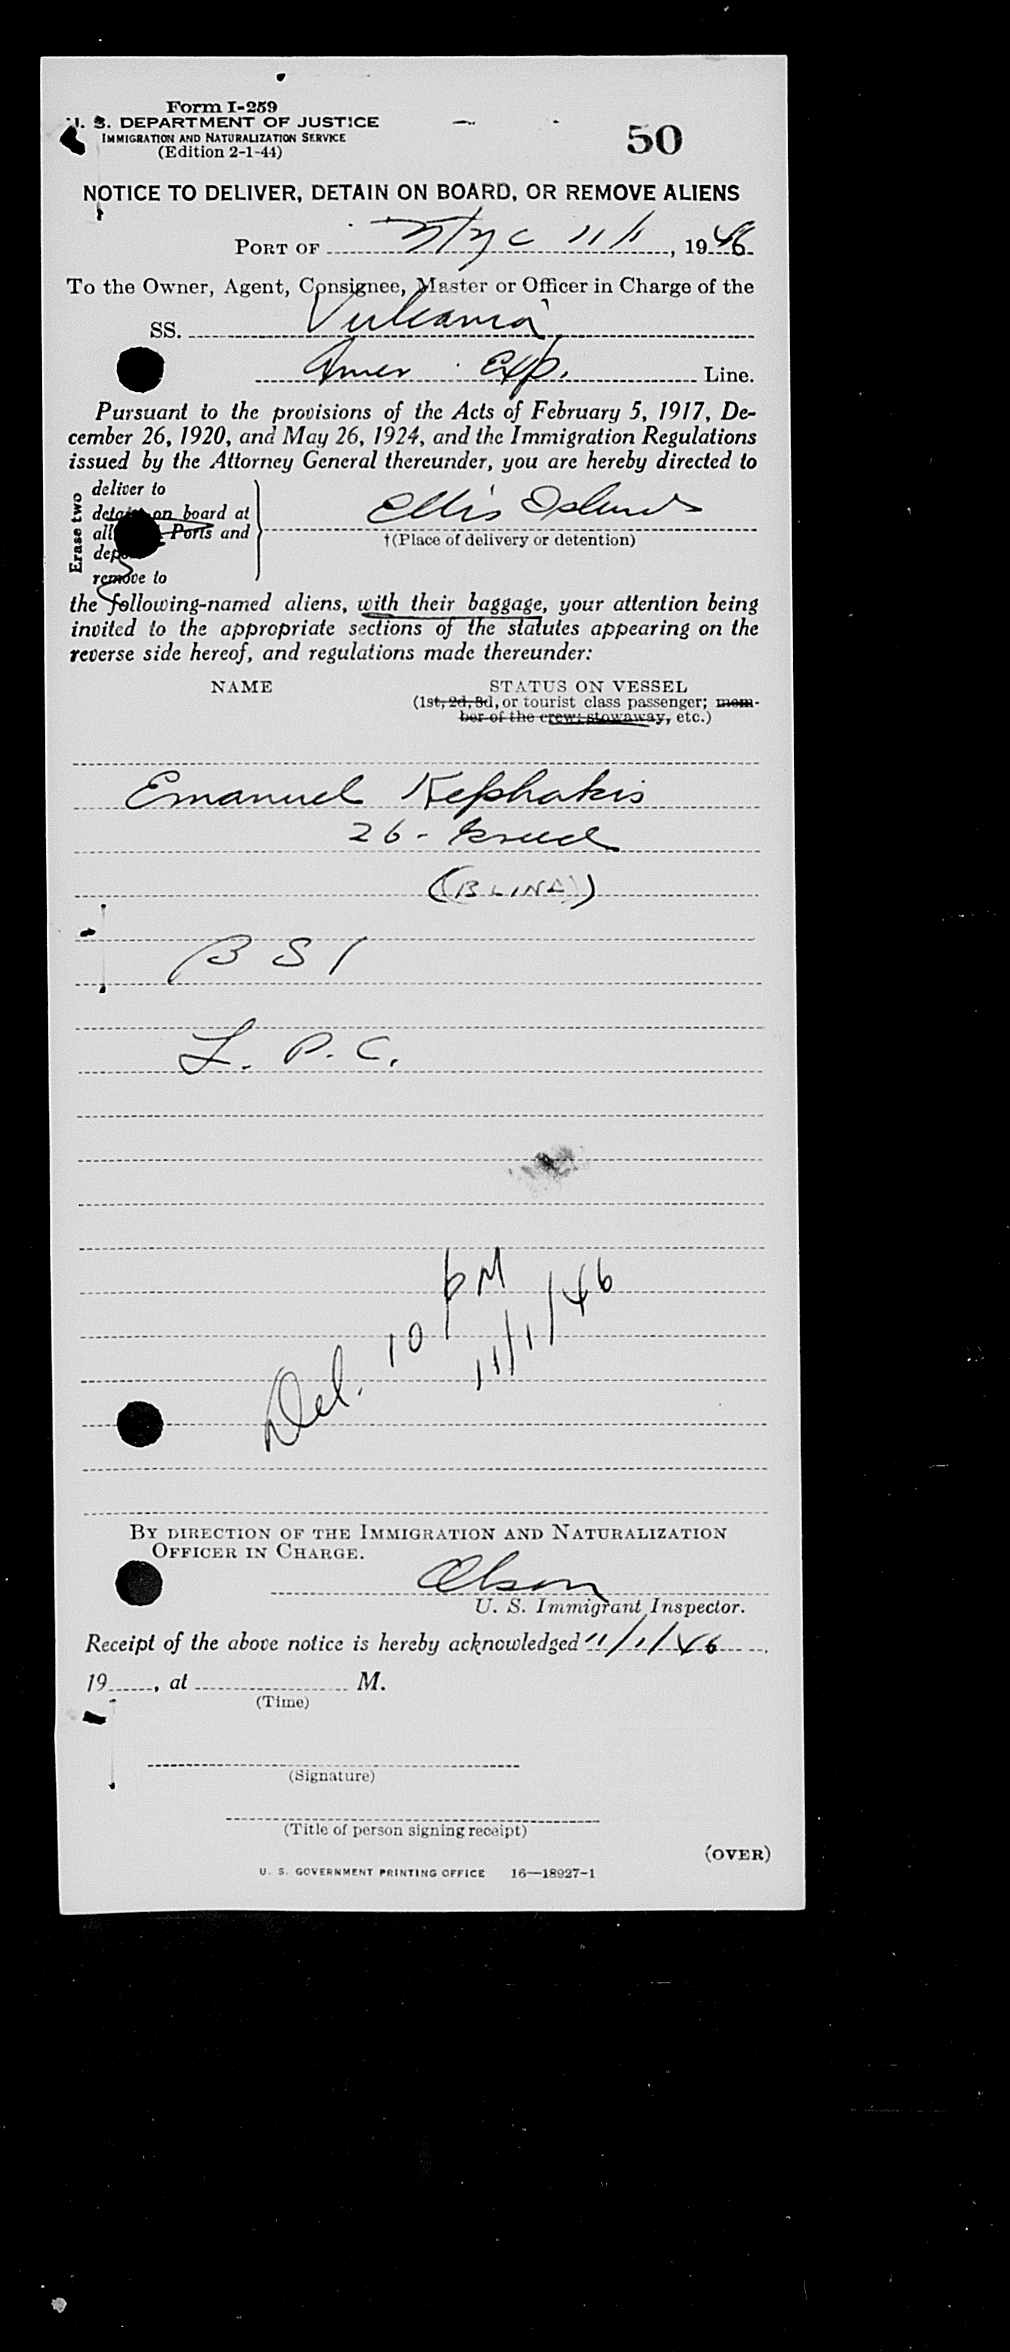 Form I-259
U. S. DEPARTMENT OF JUSTICE
IMMIGRATION AND NATURALIZATION SERVICE
(Edition 2-1-44)
50
NOTICE TO DELIVER, DETAIN ON BOARD, OR REMOVE ALIENS
PORT OF N Y C 11/1, 1946
To the Owner, Agent, Consignee, Master or Officer in Charge of the
SS. Vulcania
Amer Exp. Line.
Pursuant to the provisions of the Acts of February 5, 1917, De-
cember 26, 1920, and May 26, 1924, and the Immigration Regulations
issued by the Attorney General thereunder, you are hereby directed to
Erase two
deliver to
detain on board at
all Ports and
remove to
Ellis Island
†(Place of delivery or detention)
the following-named aliens, with their baggage, your attention being
invited to the appropriate sections of the statutes appearing on the
reverse side hereof, and regulations made thereunder:
NAME STATUS ON VESSEL
(1st, 2d, 3d, or tourist class passenger; mem-
ber of the crew; stowaway, etc.)
Emanuel Kephakis
26 - Greece
((BLIND))
B S I
L. P. C.
Del. 10 PM
11/1/46
BY DIRECTION OF THE IMMIGRATION AND NATURALIZATION
OFFICER IN CHARGE.
Olson
U. S. Immigrant Inspector.
Receipt of the above notice is hereby acknowledged 11/1/46,
19, at M.
(Time)
(Signature)
(Title of person signing receipt)
(OVER)
U. S. GOVERNMENT PRINTING OFFICE 16—18927-1